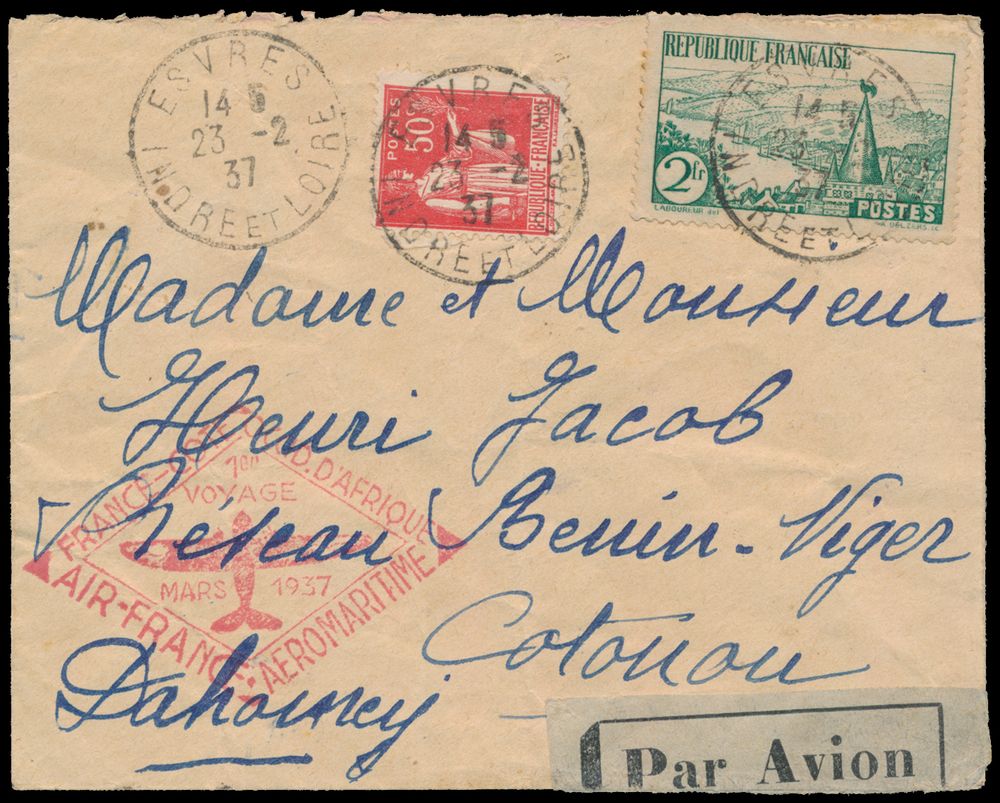 ESVRES
14 5
23 -2
37
INDRE ET LOIRE
ESVRES
14 5
23 -2
37
INDRE ET LOIRE
POSTES
50c
REPUBLIQUE-FRANÇAISE
REPUBLIQUE FRANÇAISE
2fr
POSTES
LABOUREUR del
ESVRES
14 5
23
37
INDRE ET
Madame et Monsieur
Henri Jacob
Réseau Benin-Niger
Cotonou
Dahomey
FRANCE-COTE OCCID. D'AFRIQUE
1er
VOYAGE
MARS 1937
AIR-FRANCE-AEROMARITIME
Par Avion